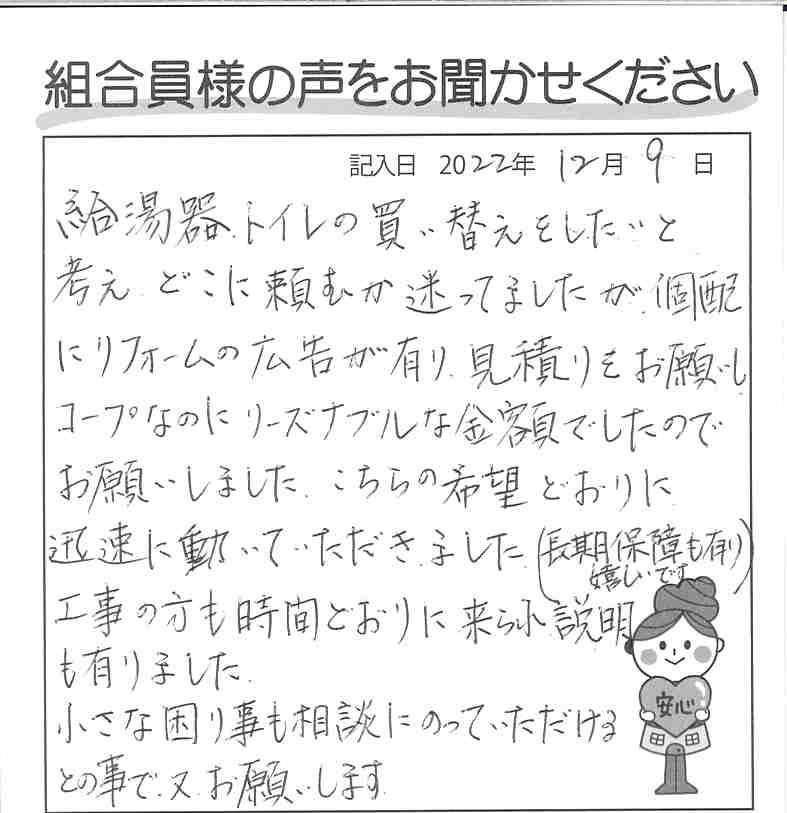 組合員様の声をお聞かせください
記入日 2022年 12月 9日
給湯器、トイレの買い替えをしたいと
考え、どこに頼むか迷ってましたが、個配
にリフォームの広告が有り、見積りをお願いし
コープなのにリーズナブルな金額でしたので
お願いしました。こちらの希望どおりに
迅速に動いていただきました。(長期保障も有り
嬉しいです)
工事の方も時間どおりに来られ、説明
も有りました。
小さな困り事も相談にのっていただける
との事で、又、お願いします。
安心